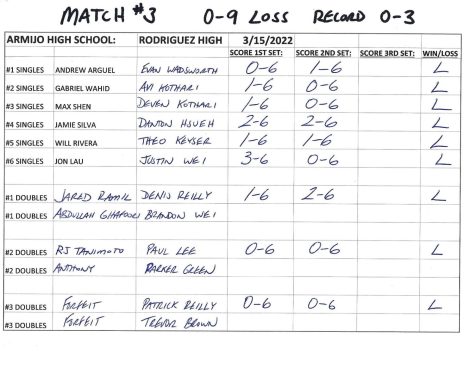 MATCH #3 0-9 LOSS RECORD 0-3
ARMIJO HIGH SCHOOL: RODRIGUEZ HIGH 3/15/2022
SCORE 1ST SET: SCORE 2ND SET: SCORE 3RD SET: WIN/LOSS
#1 SINGLES ANDREW ARGUEL EVAN WADSWORTH 0-6 1-6 L
#2 SINGLES GABRIEL WAHID AVI KOTHARI 1-6 0-6 L
#3 SINGLES MAX SHEN DEVEN KOTHARI 1-6 0-6 L
#4 SINGLES JAMIE SILVA DANTON HSUEH 2-6 2-6 L
#5 SINGLES WILL RIVERA THEO KEYSER 1-6 1-6 L
#6 SINGLES JON LAU JUSTIN WEI 3-6 0-6 L
#1 DOUBLES JARED RAMIL DENIS REILLY 1-6 2-6 L
#1 DOUBLES ABDULLAH GHAFOORI BRANDON WEI
#2 DOUBLES RJ TANIMOTO PAUL LEE 0-6 0-6 L
#2 DOUBLES ANTHONY PARKER GREEN
#3 DOUBLES FORFEIT PATRICK REILLY 0-6 0-6 L
#3 DOUBLES FORFEIT TREVOR BROWN